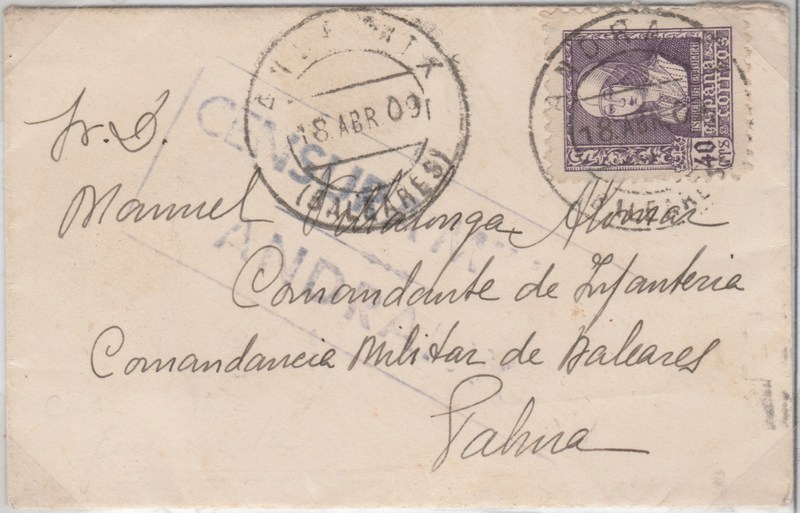 ANDRAITX
18. ABR 09
(BALEARES)
ANDRA
18 ABR 0
BALEARES
ISABEL LA CATOLICA
ESPAÑA
CORREOS
40 CTS
CENSURA
ANDRA
Sr. D.
Manuel Villalonga Alomar
Comandante de Infanteria
Comandancia Militar de Baleares
Palma